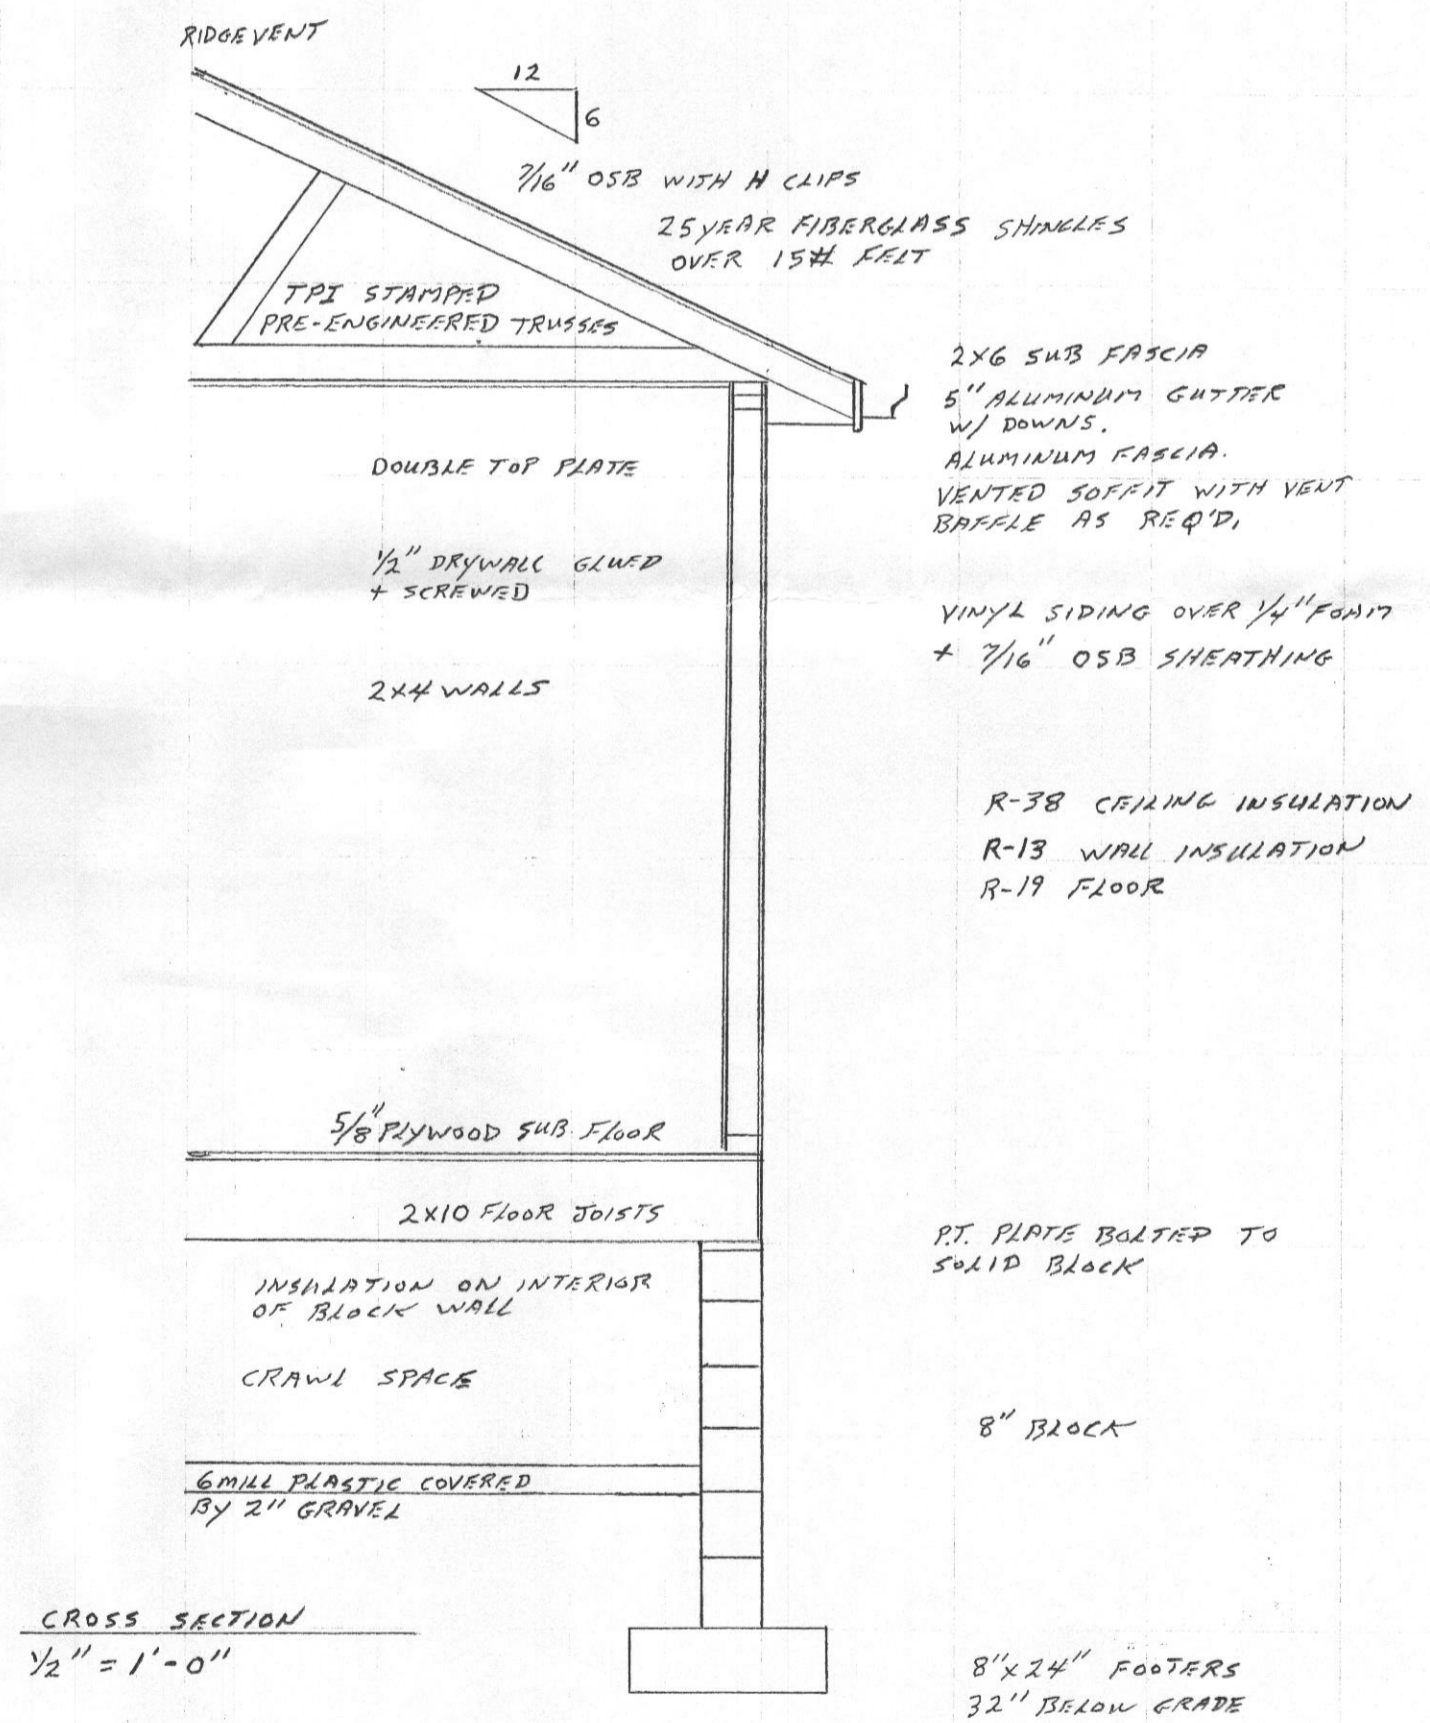 RIDGE VENT
12
6
7/16" OSB WITH H CLIPS
25 YEAR FIBERGLASS SHINGLES
OVER 15# FELT
TPI STAMPED
PRE-ENGINEERED TRUSSES
2X6 SUB FASCIA
5" ALUMINUM GUTTER
W/ DOWNS.
ALUMINUM FASCIA.
VENTED SOFFIT WITH VENT
BAFFLE AS REQ'D.
DOUBLE TOP PLATE
1/2" DRYWALL GLUED
+ SCREWED
VINYL SIDING OVER 1/4" FOAM
+ 7/16" OSB SHEATHING
2X4 WALLS
R-38 CEILING INSULATION
R-13 WALL INSULATION
R-19 FLOOR
5/8" PLYWOOD SUB FLOOR
2X10 FLOOR JOISTS
P.T. PLATE BOLTED TO
SOLID BLOCK
INSULATION ON INTERIOR
OF BLOCK WALL
CRAWL SPACE
8" BLOCK
6 MILL PLASTIC COVERED
BY 2" GRAVEL
CROSS SECTION
1/2" = 1'-0"
8"X24" FOOTERS
32" BELOW GRADE